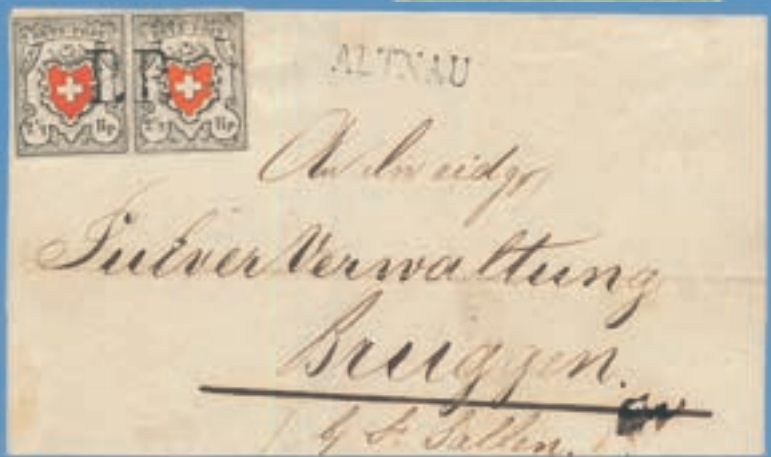 2½ Rp. 2½ Rp.
ALTNAU
An die eidg.
Pulver Verwaltung
Bruggen.
by St. Gallen.